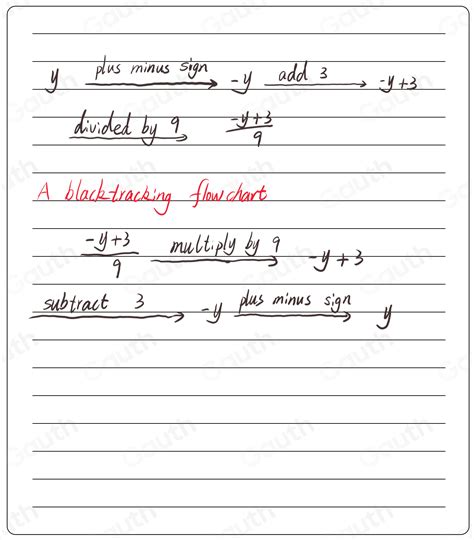 y plus minus sign → -y add 3 → -y+3
divided by 9 → -y+3/9
A blacktracking flowchart
-y+3/9 multiply by 9 → -y+3
subtract 3 → -y plus minus sign → y
Gauth